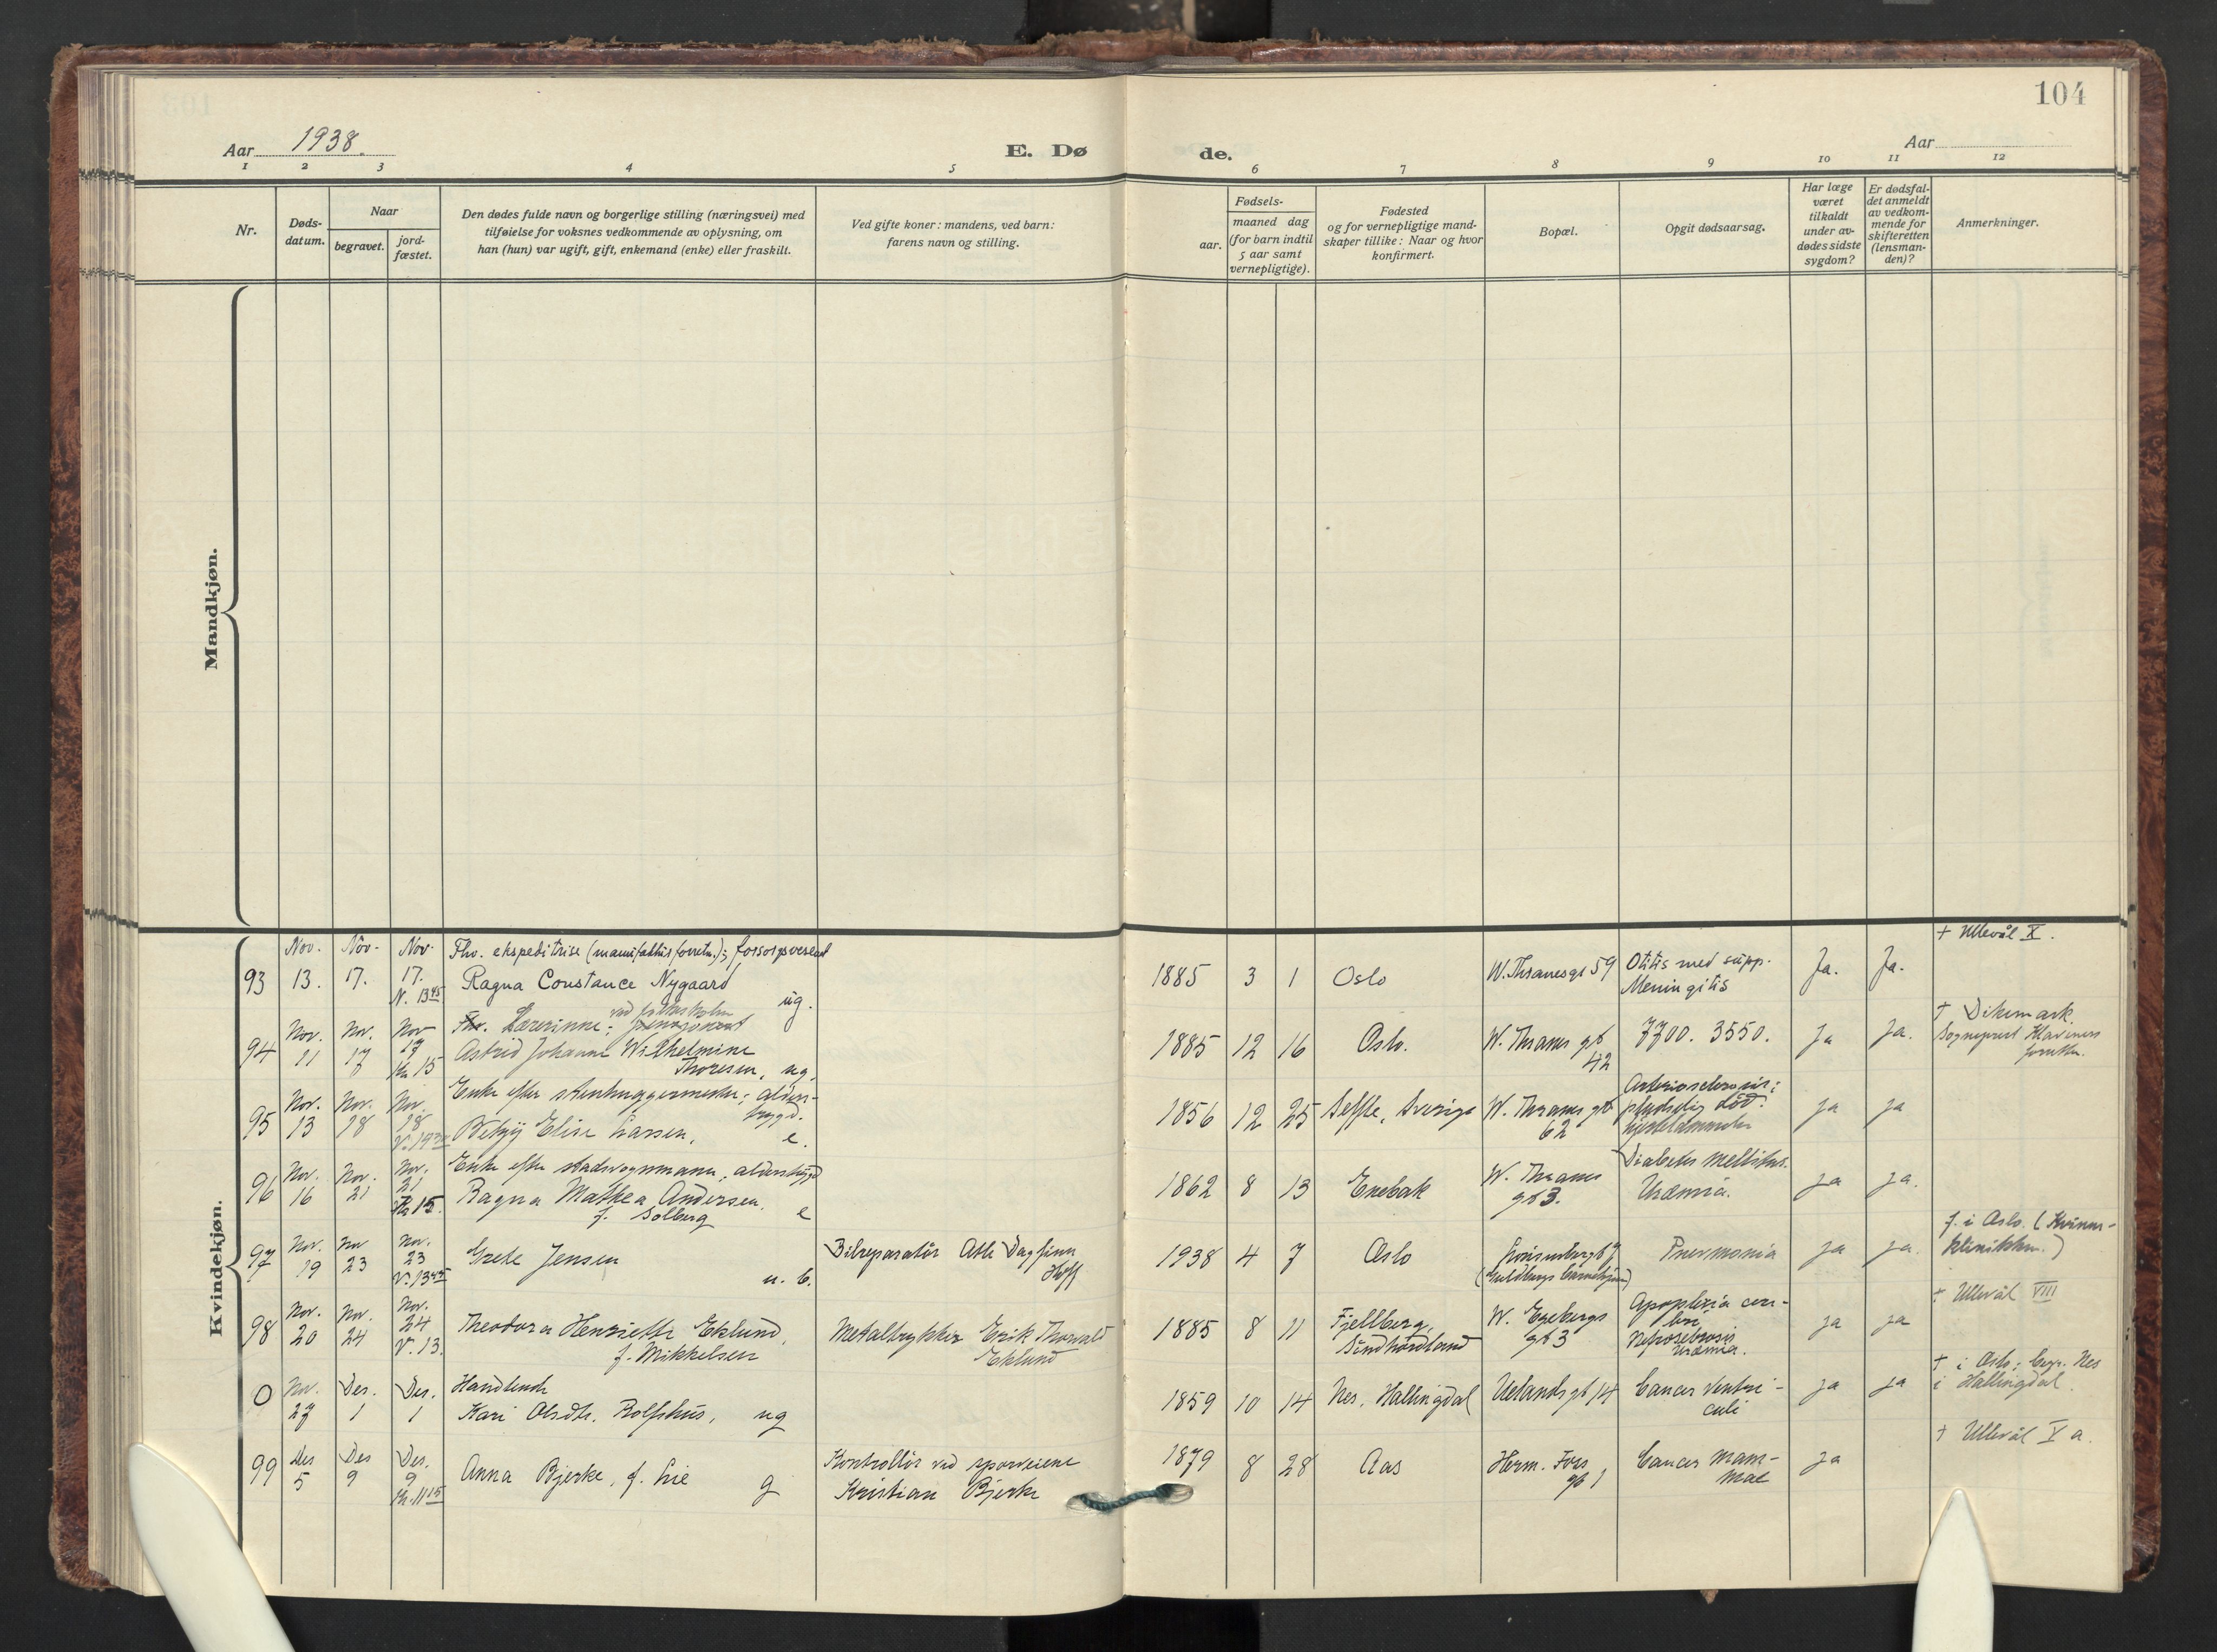 104
Aar 1938.
E. Dø
de.
Aar
1 2 3 4 5 6 7 8 9 10 11 12
Nr.
Døds-
datum.
Naar
begravet.
jord-
fæstet.
Den dødes fulde navn og borgerlige stilling (næringsvei) med
tilføielse for voksnes vedkommende av oplysning, om
han (hun) var ugift, gift, enkemand (enke) eller fraskilt.
Ved gifte koner: mandens, ved barn:
farens navn og stilling.
Fødsels-
aar.
maaned dag
(for barn indtil
5 aar samt
vernepligtige).
Fødested
og for vernepligtige mand-
skaper tillike: Naar og hvor
konfirmert.
Bopæl.
Opgit dødsaarsag.
Har læge
været
tilkaldt
under av-
dødes sidste
sygdom?
Er dødsfal-
det anmeldt
av vedkom-
mende for
skifteretten
(lensman-
den)?
Anmerkninger.
Mandkjøn.
Kvindekjøn.
93
Nov.
13.
Nov.
17.
Nov.
17.
N. 13 45
Fhv. ekspeditrise
Ragna Constance Nygaard
ug.
1885 3 1 Oslo
W. Thranesgt 59
Otitis med supp.
Meningitis
Ja. Ja.
+ Ullevål X.
94
Nov.
11
Nov.
17
Nov
17
15
Fhv. Lærerinne;
Astrid Johanne Wilhelmine
Thoresen, ug.
1885 12 16 Oslo.
W. Thranes gt
42
7700. 3550.
Ja Ja.
+ Dikemark
Sogneprest
95
Nov.
13
Nov.
18
Nov.
18
Enke efter stenhuggermester; alders-
trygd.
Elise Larsen, e.
1856 12 25
Seffle, Sverige
W. Thranes gt
62
Arteriosclerosis;
pludselig død.
ja ja
96
Nov.
16
Nov.
21
Nov.
21
Kr 15.
Enke efter stadsvognmann, alderstrygd
Ragna Mathea Andersen,
f. Solberg e
1862 8 13 Enebak
W. Thranes
gt 3.
Diabetes mellitus.
Urämia.
ja ja.
97
Nov.
19
Nov
23
Nov.
23
V. 13 45
Grete Jensen
u. b.
Bilreparatør Atle Dagfinn
Hoff
1938 4 7 Oslo
Pnevmonia
ja ja.
f. i Oslo. (Kvinne-
klinikken.)
98
Nov.
20
Nov.
24
Nov.
24
V. 13.
Theodora Henriette Eklund,
f. Mikkelsen
Metaltrykker Erik Thorvald
Eklund
1885 8 11
Fjellberg,
Sundhordland
W. Egebergs
gt 3
Apoplexia cere-
bri
Urämia.
ja ja
+ Ullevål VIII
0
Nov.
27
Des.
1
Des.
1
Handlende
Kari Olsdtr. Rolfshus, ug
1859 10 14 Nes, Hallingdal
Uelands gt 14
Cancer ventri-
culi
ja ja
+ i Oslo; begr. Nes
i Hallingdal.
99
Des
5
Des
9
Des.
9
Kr. 11 15
Anna Bjerke, f. Lie g
Kontrollør ved sporveiene
Kristian Bjerke
1879 8 28 Aas
Herm. Foss
gt 1
Cancer mam-
mae
ja
+ Ullevål X a.